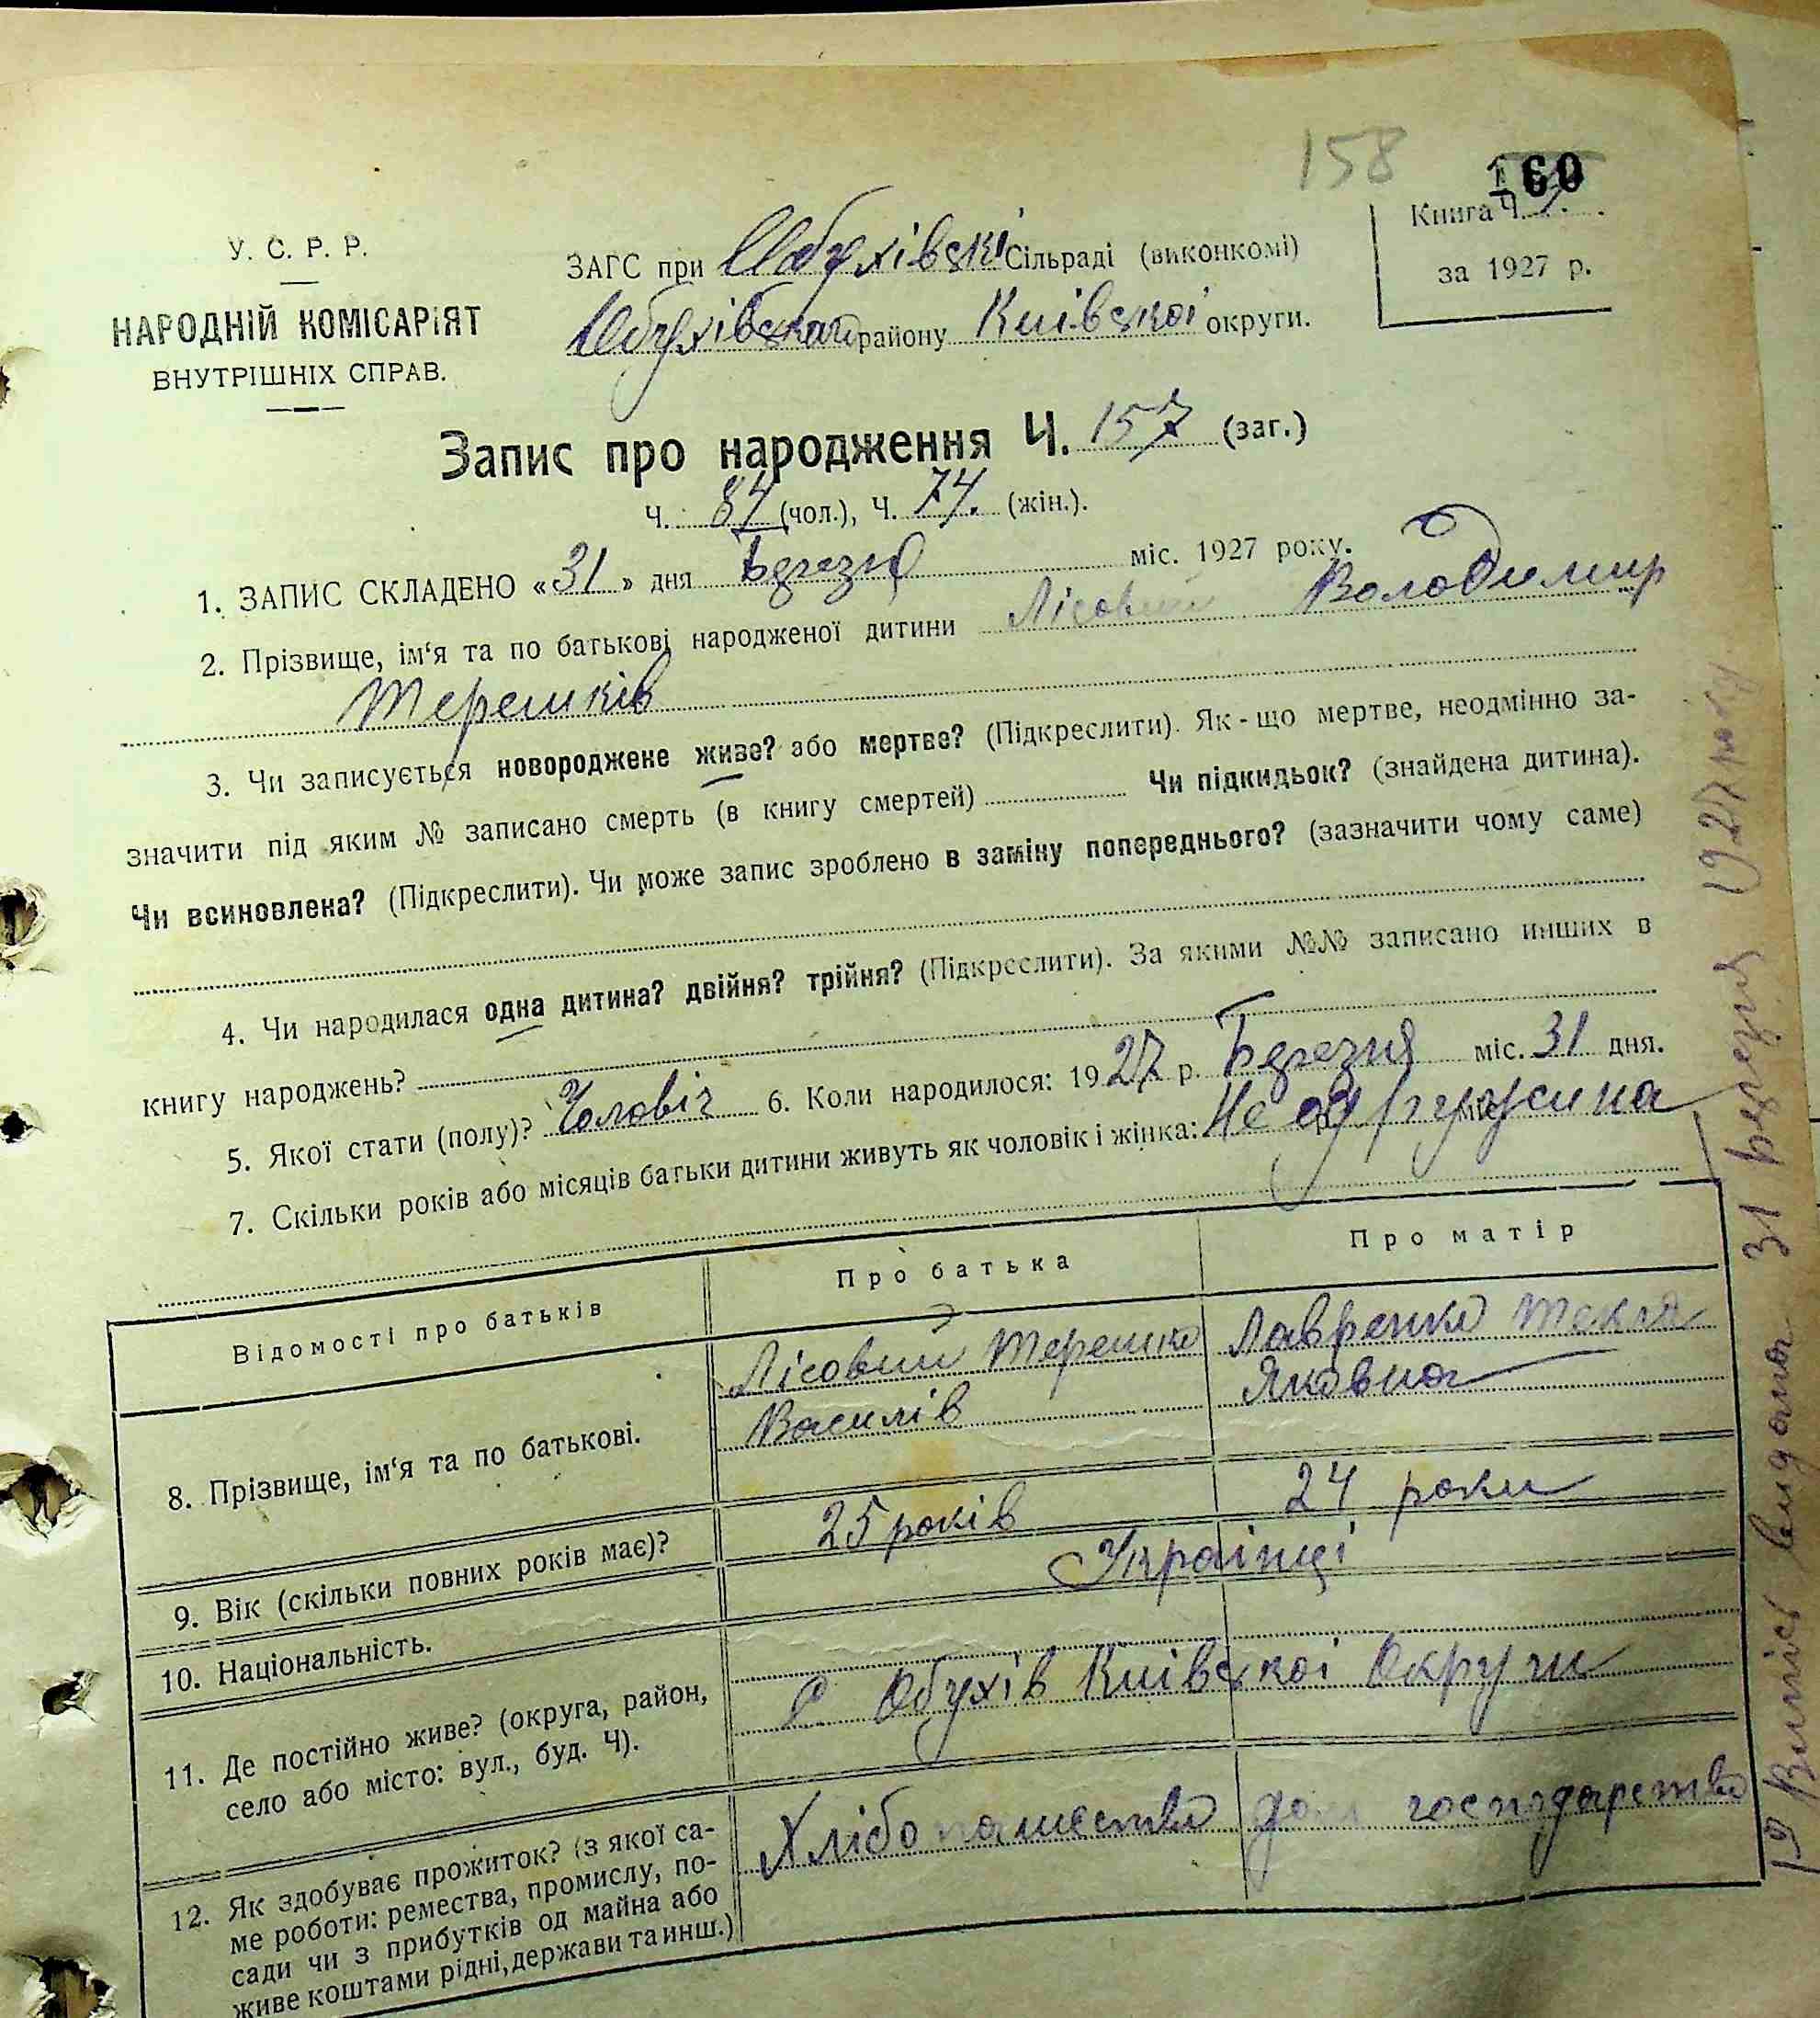 158
160
У. С. Р. Р.
НАРОДНІЙ КОМІСАРІЯТ
ВНУТРІШНІХ СПРАВ.
ЗАГС при Обухівські Сільраді (виконкомі)
Обухівского району Київської округи.
Книга Ч.
за 1927 р.
Запис про народження Ч. 157 (заг.)
Ч. 84 (чол.), Ч. 74. (жін.).
1. ЗАПИС СКЛАДЕНО «31» дня Березня міс. 1927 року.
2. Прізвище, ім‘я та по батькові народженої дитини Лісовий Володимир
Терешків
3. Чи записується новороджене живе? або мертве? (Підкреслити). Як-що мертве, неодмінно за-
значити під яким № записано смерть (в книгу смертей) Чи підкидьок? (знайдена дитина).
Чи всиновлена? (Підкреслити). Чи може запис зроблено в заміну попереднього? (зазначити чому саме)
4. Чи народилася одна дитина? двійня? трійня? (Підкреслити). За якими №№ записано инших в
книгу народжень?
5. Якої стати (полу)? Чоловіч 6. Коли народилося: 1927 р. Березня міс. 31 дня.
7. Скільки років або місяців батьки дитини живуть як чоловік і жінка:
Відомості про батьків
Про батька
Про матір
8. Прізвище, ім‘я та по батькові.
Лісовий Терешко
Василів
Лавренко Текля
Яковна
9. Вік (скільки повних років має)?
25 років
24 роки
10. Національність.
Українці
11. Де постійно живе? (округа, район,
село або місто: вул., буд. Ч).
с Обухів Київскої Округи
12. Як здобуває прожиток? (з якої са-
ме роботи: ремества, промислу, по-
сади чи з прибутків од майна або
живе коштами рідні, держави та инш.)
Хлібопашество
дом господарство
Випись видана 31 Березня 1927 року